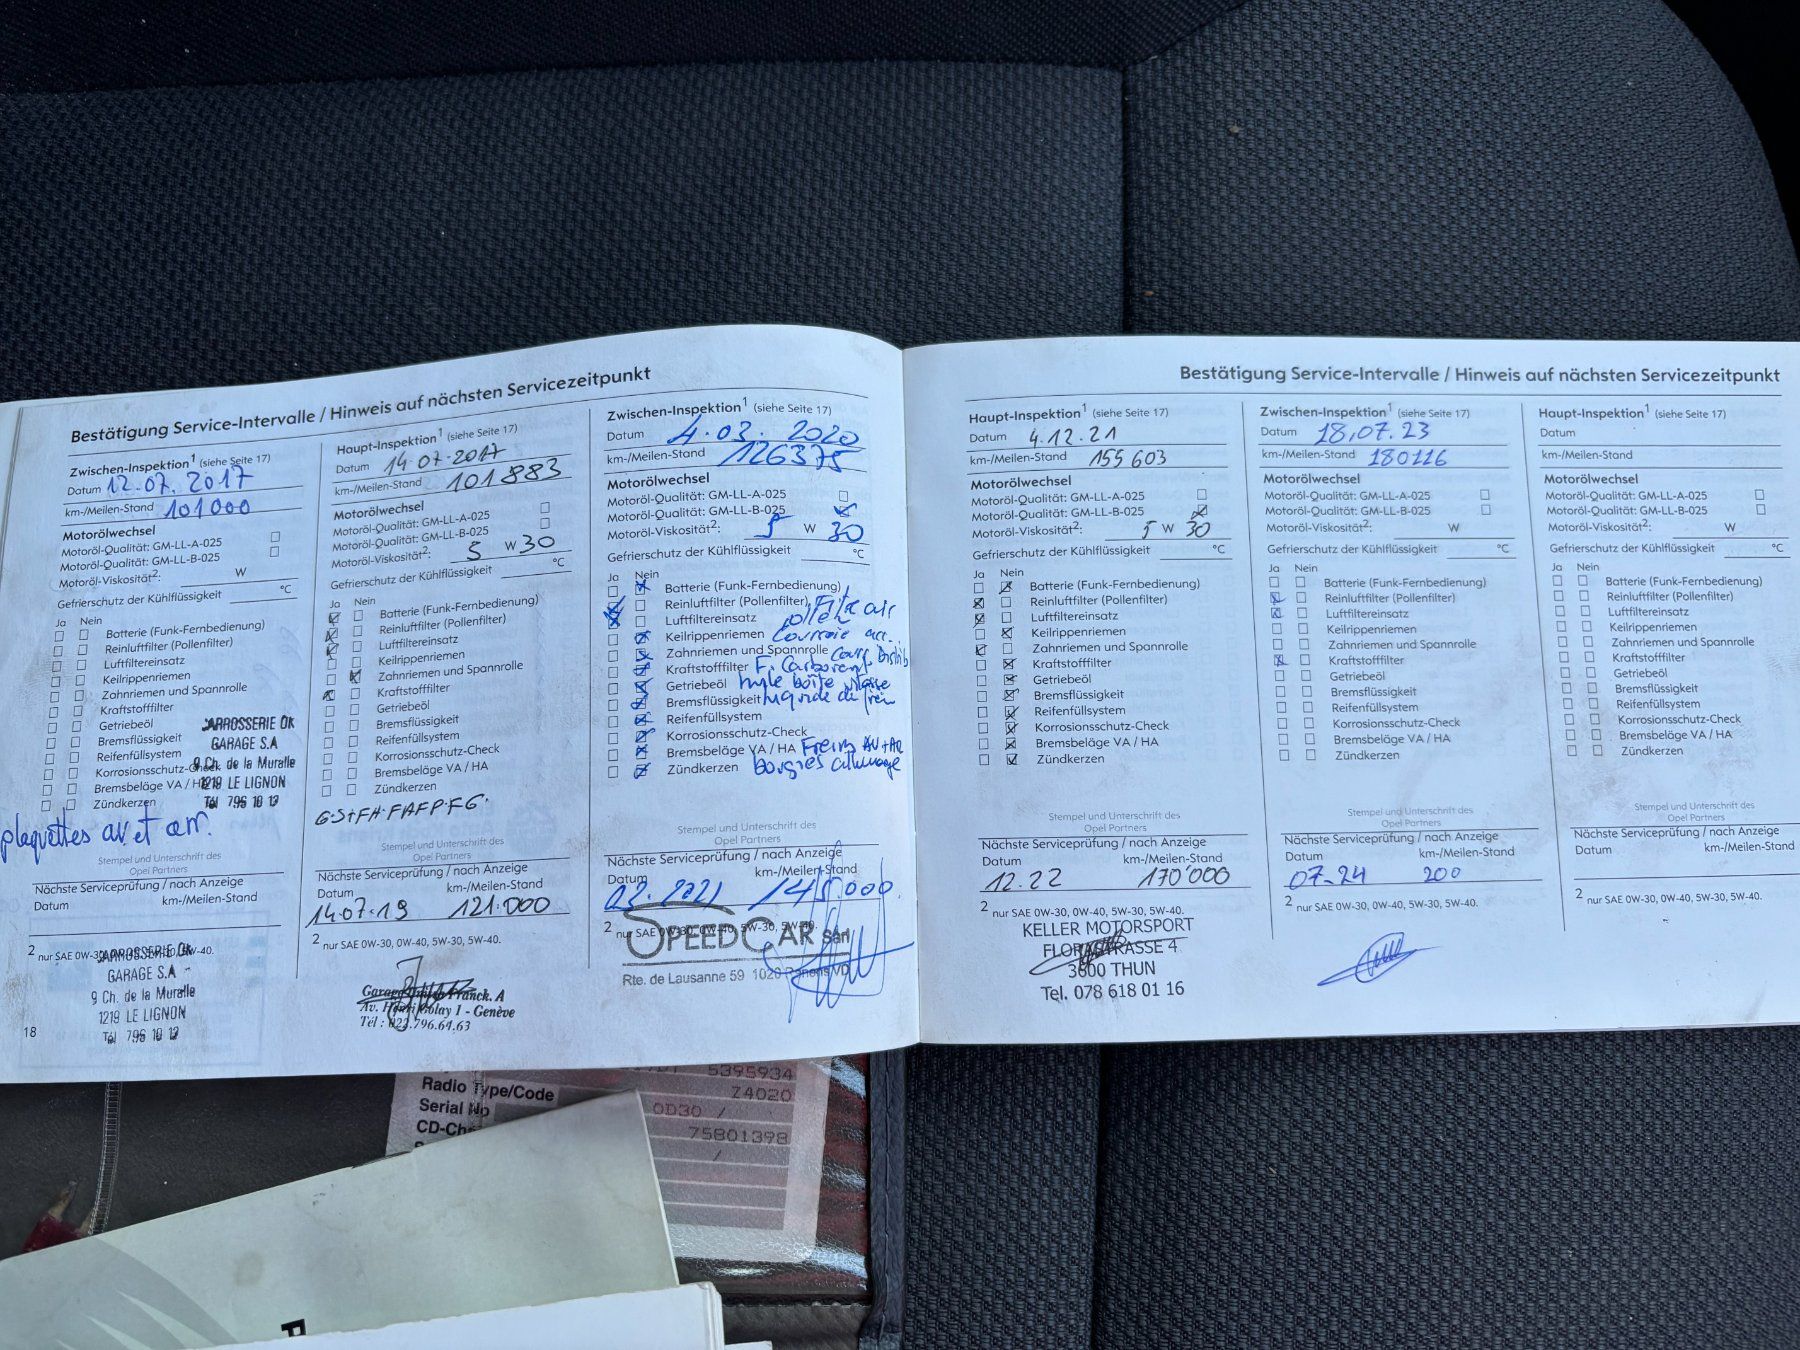 Bestätigung Service-Intervalle / Hinweis auf nächsten Servicezeitpunkt
Zwischen-Inspektion¹ (siehe Seite 17)
Datum 12.07.2017
km-/Meilen-Stand 101000
Motorölwechsel
Motoröl-Qualität: GM-LL-A-025
Motoröl-Qualität: GM-LL-B-025
Motoröl-Viskosität²: W
Gefrierschutz der Kühlflüssigkeit °C
Ja Nein
Batterie (Funk-Fernbedienung)
Reinluftfilter (Pollenfilter)
Luftfiltereinsatz
Keilrippenriemen
Zahnriemen und Spannrolle
Kraftstofffilter
Getriebeöl
Bremsflüssigkeit
Reifenfüllsystem
Korrosionsschutz-Check
Bremsbeläge VA / HA
Zündkerzen
CARROSSERIE OK
GARAGE S.A
9 Ch. de la Muralle
1219 LE LIGNON
Tél 796 10 12
plaquettes av et arr.
Stempel und Unterschrift des
Opel Partners
Nächste Serviceprüfung / nach Anzeige
Datum km-/Meilen-Stand
² nur SAE 0W-30, 0W-40, 5W-30, 5W-40.
CARROSSERIE OK
GARAGE S.A
9 Ch. de la Muralle
1219 LE LIGNON
Tél 796 10 12
18
Haupt-Inspektion¹ (siehe Seite 17)
Datum 14.07.2017
km-/Meilen-Stand 101883
Motorölwechsel
Motoröl-Qualität: GM-LL-A-025
Motoröl-Qualität: GM-LL-B-025
Motoröl-Viskosität²: 5 W 30
Gefrierschutz der Kühlflüssigkeit °C
Ja Nein
Batterie (Funk-Fernbedienung)
Reinluftfilter (Pollenfilter)
Luftfiltereinsatz
Keilrippenriemen
Zahnriemen und Spannrolle
Kraftstofffilter
Getriebeöl
Bremsflüssigkeit
Reifenfüllsystem
Korrosionsschutz-Check
Bremsbeläge VA / HA
Zündkerzen
G.S+FH.FAFP.FG.
Stempel und Unterschrift des
Opel Partners
Nächste Serviceprüfung / nach Anzeige
Datum km-/Meilen-Stand
14.07.19 121.000
² nur SAE 0W-30, 0W-40, 5W-30, 5W-40.
Garage Franck. A
Av. Henri Golay 1 - Genève
Tél : 022.796.61.63
Zwischen-Inspektion¹ (siehe Seite 17)
Datum 4.03.2020
km-/Meilen-Stand 126375
Motorölwechsel
Motoröl-Qualität: GM-LL-A-025
Motoröl-Qualität: GM-LL-B-025
Motoröl-Viskosität²: 5 W 30
Gefrierschutz der Kühlflüssigkeit °C
Ja Nein
Batterie (Funk-Fernbedienung)
Reinluftfilter (Pollenfilter) Filtre air
Luftfiltereinsatz pollen
Keilrippenriemen Courroie acc.
Zahnriemen und Spannrolle Cour. Distrib
Kraftstofffilter F. Carburant
Getriebeöl huile boîte vitesse
Bremsflüssigkeit liquide de frein
Reifenfüllsystem
Korrosionsschutz-Check
Bremsbeläge VA / HA Freins AV+AR
Zündkerzen bougies allumage
Stempel und Unterschrift des
Opel Partners
Nächste Serviceprüfung / nach Anzeige
Datum km-/Meilen-Stand
03.2021 145.000.
² nur SAE 0W-30, 0W-40, 5W-30, 5W-40.
SPEEDCAR Sàrl
Rte. de Lausanne 59 1020 Renens/VD
Bestätigung Service-Intervalle / Hinweis auf nächsten Servicezeitpunkt
Haupt-Inspektion¹ (siehe Seite 17)
Datum 4.12.21
km-/Meilen-Stand 155603
Motorölwechsel
Motoröl-Qualität: GM-LL-A-025
Motoröl-Qualität: GM-LL-B-025
Motoröl-Viskosität²: 5 W 30
Gefrierschutz der Kühlflüssigkeit °C
Ja Nein
Batterie (Funk-Fernbedienung)
Reinluftfilter (Pollenfilter)
Luftfiltereinsatz
Keilrippenriemen
Zahnriemen und Spannrolle
Kraftstofffilter
Getriebeöl
Bremsflüssigkeit
Reifenfüllsystem
Korrosionsschutz-Check
Bremsbeläge VA / HA
Zündkerzen
Stempel und Unterschrift des
Opel Partners
Nächste Serviceprüfung / nach Anzeige
Datum km-/Meilen-Stand
12.22 170'000
² nur SAE 0W-30, 0W-40, 5W-30, 5W-40.
KELLER MOTORSPORT
FLORASTRASSE 4
3600 THUN
Tel. 078 618 01 16
Zwischen-Inspektion¹ (siehe Seite 17)
Datum 18.07.23
km-/Meilen-Stand 180116
Motorölwechsel
Motoröl-Qualität: GM-LL-A-025
Motoröl-Qualität: GM-LL-B-025
Motoröl-Viskosität²: W
Gefrierschutz der Kühlflüssigkeit °C
Ja Nein
Batterie (Funk-Fernbedienung)
Reinluftfilter (Pollenfilter)
Luftfiltereinsatz
Keilrippenriemen
Zahnriemen und Spannrolle
Kraftstofffilter
Getriebeöl
Bremsflüssigkeit
Reifenfüllsystem
Korrosionsschutz-Check
Bremsbeläge VA / HA
Zündkerzen
Stempel und Unterschrift des
Opel Partners
Nächste Serviceprüfung / nach Anzeige
Datum km-/Meilen-Stand
07-24 200
² nur SAE 0W-30, 0W-40, 5W-30, 5W-40.
Haupt-Inspektion¹ (siehe Seite 17)
Datum
km-/Meilen-Stand
Motorölwechsel
Motoröl-Qualität: GM-LL-A-025
Motoröl-Qualität: GM-LL-B-025
Motoröl-Viskosität²: W
Gefrierschutz der Kühlflüssigkeit °C
Ja Nein
Batterie (Funk-Fernbedienung)
Reinluftfilter (Pollenfilter)
Luftfiltereinsatz
Keilrippenriemen
Zahnriemen und Spannrolle
Kraftstofffilter
Getriebeöl
Bremsflüssigkeit
Reifenfüllsystem
Korrosionsschutz-Check
Bremsbeläge VA / HA
Zündkerzen
Stempel und Unterschrift des
Opel Partners
Nächste Serviceprüfung / nach Anzeige
Datum km-/Meilen-Stand
² nur SAE 0W-30, 0W-40, 5W-30, 5W-40.
5395934
Radio Type/Code Z4020
Serial No 0D30 /
CD-Ch 75801398
/